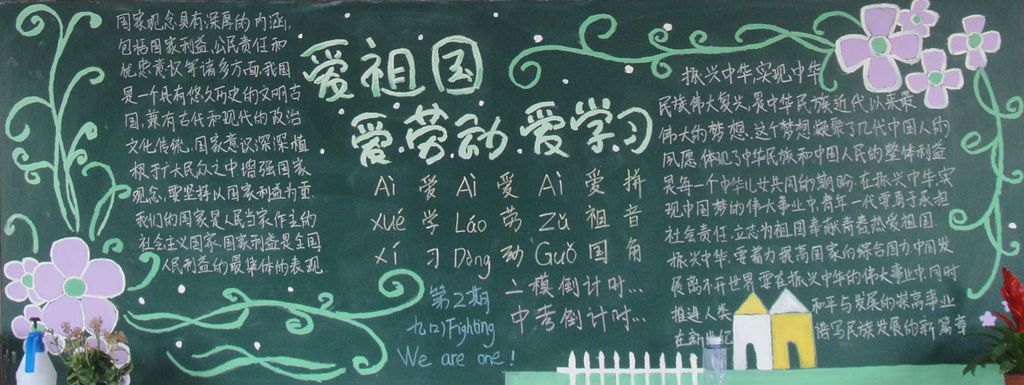 国家观念具有深厚的内涵,
包括国家利益、公民责任和
优患意权等诸多方面,我国
是一个具有悠久历史的文明古
国,兼有古代和现代的政治
文化传统,国家意识深深植
根于广大民众之中增强国家
观念,要坚持以国家利益为重
我们的国家是人民当家作主的
社会主义国家,国家利益是全国
人民利益的最集体的表现.
爱祖国
爱·劳动·爱学习
Ai 爱 Ai 爱 Ai 爱 拼
xué 学 Láo 劳 Zǔ 祖 音
xí 习 Dòng 动 Guó 国 角
第2期
九(2)Fighting
We are one!
二模倒计时...
中考倒计时...
振兴中华实现中华
民族伟大复兴,是中华民族近代以来最
伟大的梦想、这个梦想凝聚了几代中国人的
夙愿,体现了中华民族和中国人民的整体利益
是每一个中华儿女共同的期盼.在振兴中华实
现中国梦的伟大事业中,青年一代要勇于承担
社会责任,立志为祖国奉献青春热爱祖国
振兴中华,要着力提高国家的综合国力中国发
展离不开世界,要在振兴中华的伟大事业中,同时
推进人类 和平与发展的崇高事业
在新世纪 谱写民族发展的新篇章